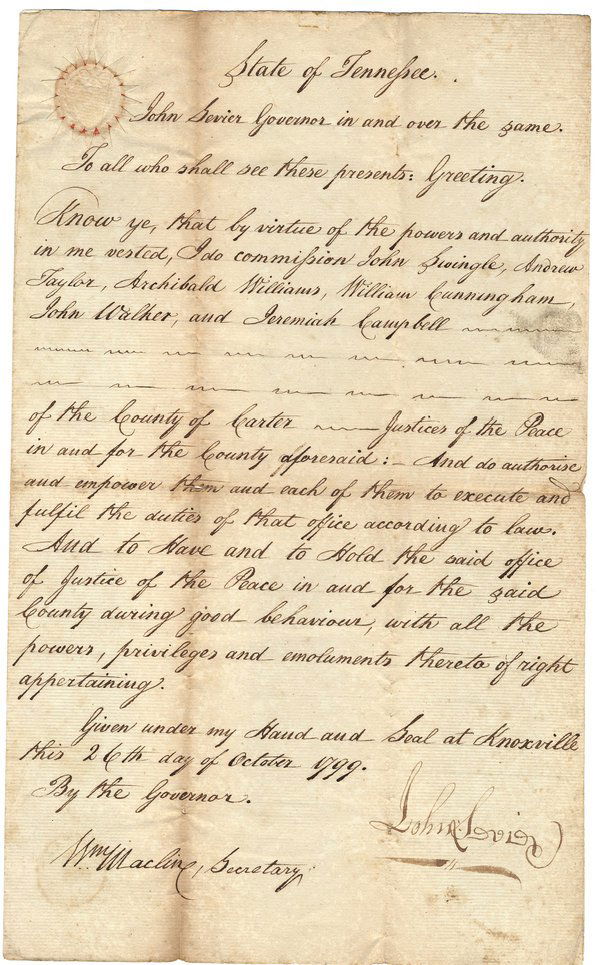 State of Tennessee.
John Sevier Governor in and over the same.
To all who shall see these presents: Greeting.
Know ye, that by virtue of the powers and authority
in me vested, I do commission John Swingle, Andrew
Taylor, Archibald Williams, William Cunningham,
John Walker, and Jeremiah Campbell
of the County of Carter Justices of the Peace
in and for the County afforesaid:- And do authorise
and empower them and each of them to execute and
fulfil the duties of that office according to law.
And to Have and to Hold the said office
of Justice of the Peace in and for the said
County during good behaviour, with all the
powers, privileges and emoluments thereto of right
appertaining.
Given under my Hand and Seal at Knoxville
this 26th day of October 1799.
By the Governor.
John Sevier
Wm Maclin, Secretary